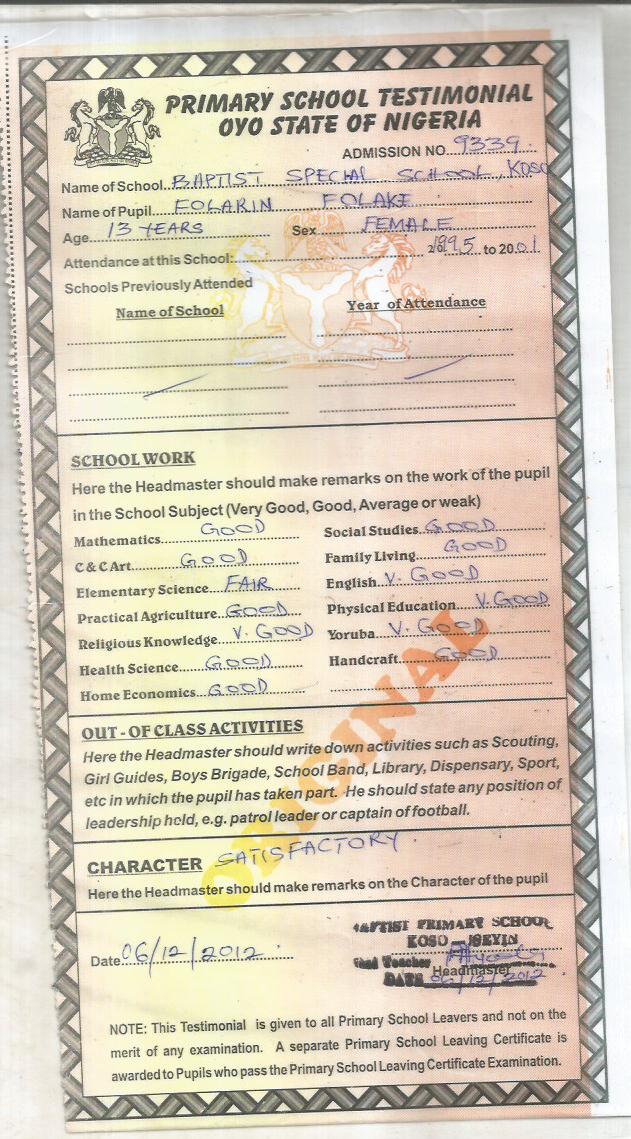 PRIMARY SCHOOL TESTIMONIAL
OYO STATE OF NIGERIA
ADMISSION NO. 9339.
Name of School. BAPTIST SPECIAL SCHOOL, KOSO
Name of Pupil FOLARIN FOLAKE
Age 13 YEARS Sex FEMALE
Attendance at this School: 1995 to 2001
Schools Previously Attended
Name of School Year of Attendance
SCHOOL WORK
Here the Headmaster should make remarks on the work of the pupil
in the School Subject (Very Good, Good, Average or weak)
Mathematics GOOD Social Studies GOOD
C & C Art GOOD Family Living GOOD
Elementary Science FAIR English V. GOOD
Practical Agriculture GOOD Physical Education V. GOOD
Religious Knowledge V. GOOD Yoruba V. GOOD
Health Science GOOD Handcraft GOOD
Home Economics GOOD
ORIGINAL
OUT - OF CLASS ACTIVITIES
Here the Headmaster should write down activities such as Scouting,
Girl Guides, Boys Brigade, School Band, Library, Dispensary, Sport,
etc in which the pupil has taken part. He should state any position of
leadership held, e.g. patrol leader or captain of football.
CHARACTER SATISFACTORY.
Here the Headmaster should make remarks on the Character of the pupil
BAPTIST PRIMARY SCHOOL
KOSO - ISEYIN
Date 06/12/2012
Head Teacher
Headmaster
DATE 06/12/2012
NOTE: This Testimonial is given to all Primary School Leavers and not on the
merit of any examination. A separate Primary School Leaving Certificate is
awarded to Pupils who pass the Primary School Leaving Certificate Examination.